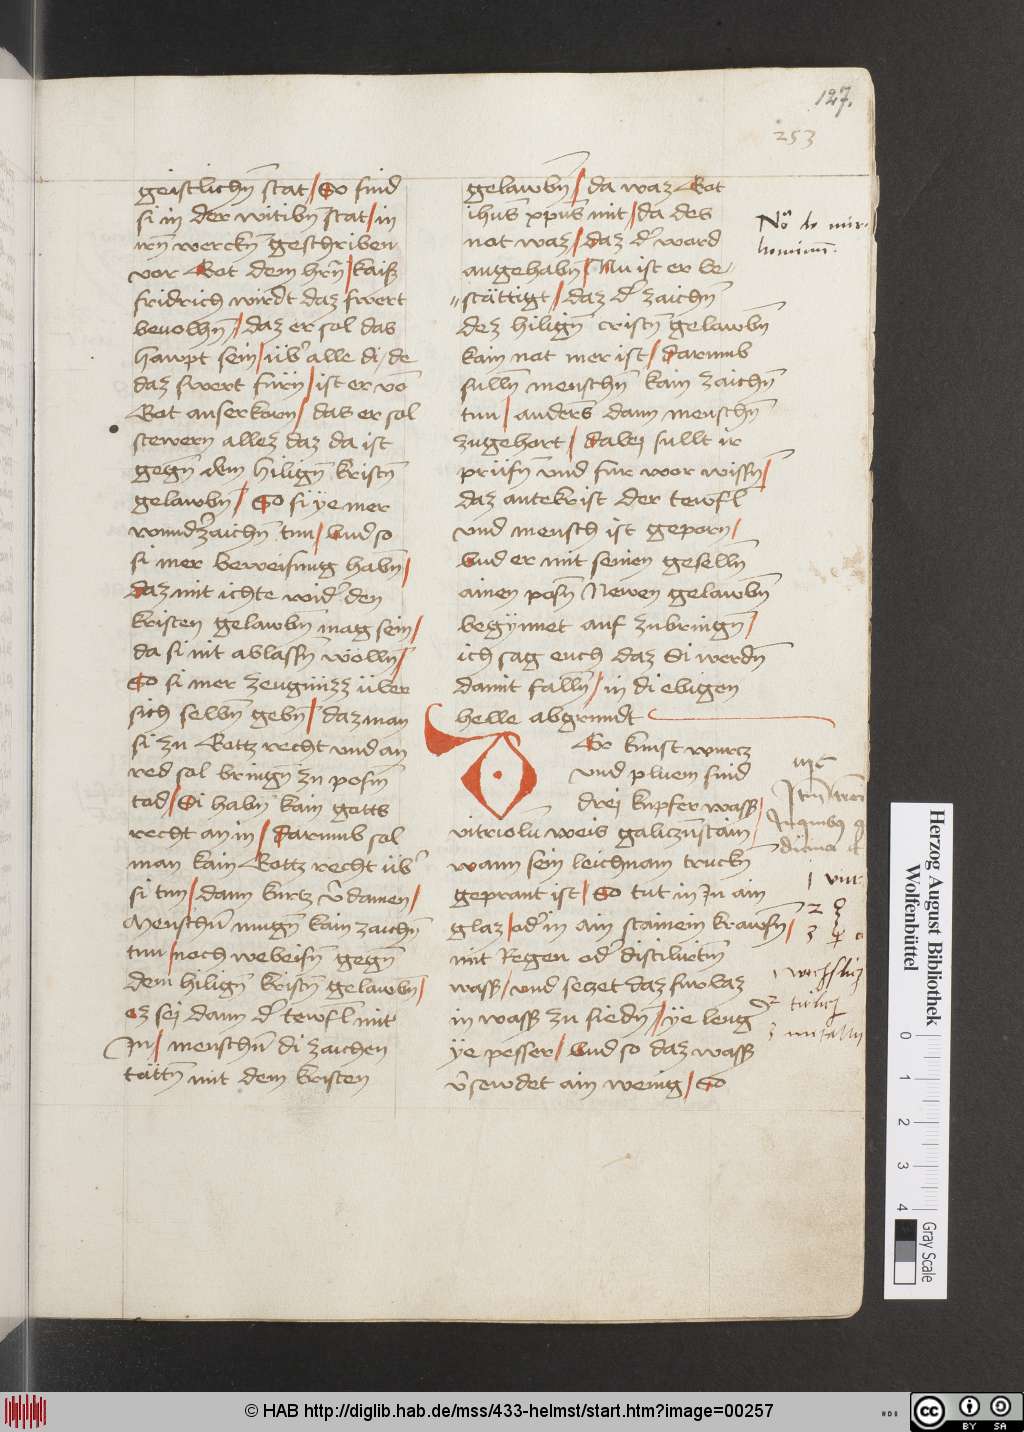 127.
253
geistlichn̄ stat / So sind
si in der witibn̄ stat / in
irn̄ werckn̄ geschriben
vor Got dem hrn̄ / kaiß
fridrich wirdt daz swert
bevolhn̄ / daz er sol das
haupt sein / üb̓ alle di / de
daz swert fürn̄ / ist er vō
Got auserkorn / das er sol
stewern allez daz da ist
gegn̄ dem hilign̄ kristn̄
gelawbn̄ / So si ÿe mer
wund̓zaichn̄ tun / Vnd so
si mer beweisung habn̄ /
daz mit ichte wid̓ den
kristen gelawbn̄ mag sein /
da si nit ablassn̄ wölln̄ /
So si mer zeugnüzz über
sich selbn̄ gebn̄ / daz man
si zu Gottz recht vnd an
red sol bringn̄ zu posm̄
tod / Si habn̄ kain gotts
recht an in / Darumb sol
man kain Gottz recht üb̓
si tun / dann kurtz v̓damen /
Menschn̄ mugn̄ kain zaichn̄
tun / noch weweisn̄ gegn̄
dem hilign̄ kristn̄ gelawbn̄ /
ez sej dann d̓ tewfl mit
In / menschn̄ di zaichen
tättn̄ mit dem kristen
gelawbn̄ / da waz Got
ihūs xp̄us mit / da des
not waz / daz d̓ word
angehabn̄ / Nu ist er be-
stättigt / daz d̓ zaichn̄
dez hilign̄ cristn̄ gelawbn̄
kain not mer ist / darumb
sulln̄ menschn̄ kain zaichn̄
tun / anders dann menschn̄
zugehort / dabej sullt ir
prüfn̄ vnd für wor wissn̄ /
daz antekrist der tewfl
vnd mensch ist geporn /
Vnd er mit seinen geselln̄
ainen posn̄ Newen gelawbn̄
begÿnnet auf zubringn̄ /
ich sag euch daz Si werdn̄
damit falln̄ / in di ebigen
helle abgrundt
Do kunst wurcz
vnd pluem sind
drej kupfer wasß /
vitriolū weis galiczn̄stain /
wann sein leichnam truckn̄
geprant ist / So tut in In ain
glaz / od̓ in ain stainein krawsn̄ /
mit Regen od̓ distilirtm̄
wasß / vnd seczet daz fürbaz
in wasß zu siedn̄ / ÿe leng̓
ÿe pesser / Vnd so daz wasß
v̓sewdet ain wenig / So
hominum.
1
2
3
© HAB http://diglib.hab.de/mss/433-helmst/start.htm?image=00257
Herzog August Bibliothek
Wolfenbüttel
0 1 2 3 4
Gray Scale
HDB
CC BY SA